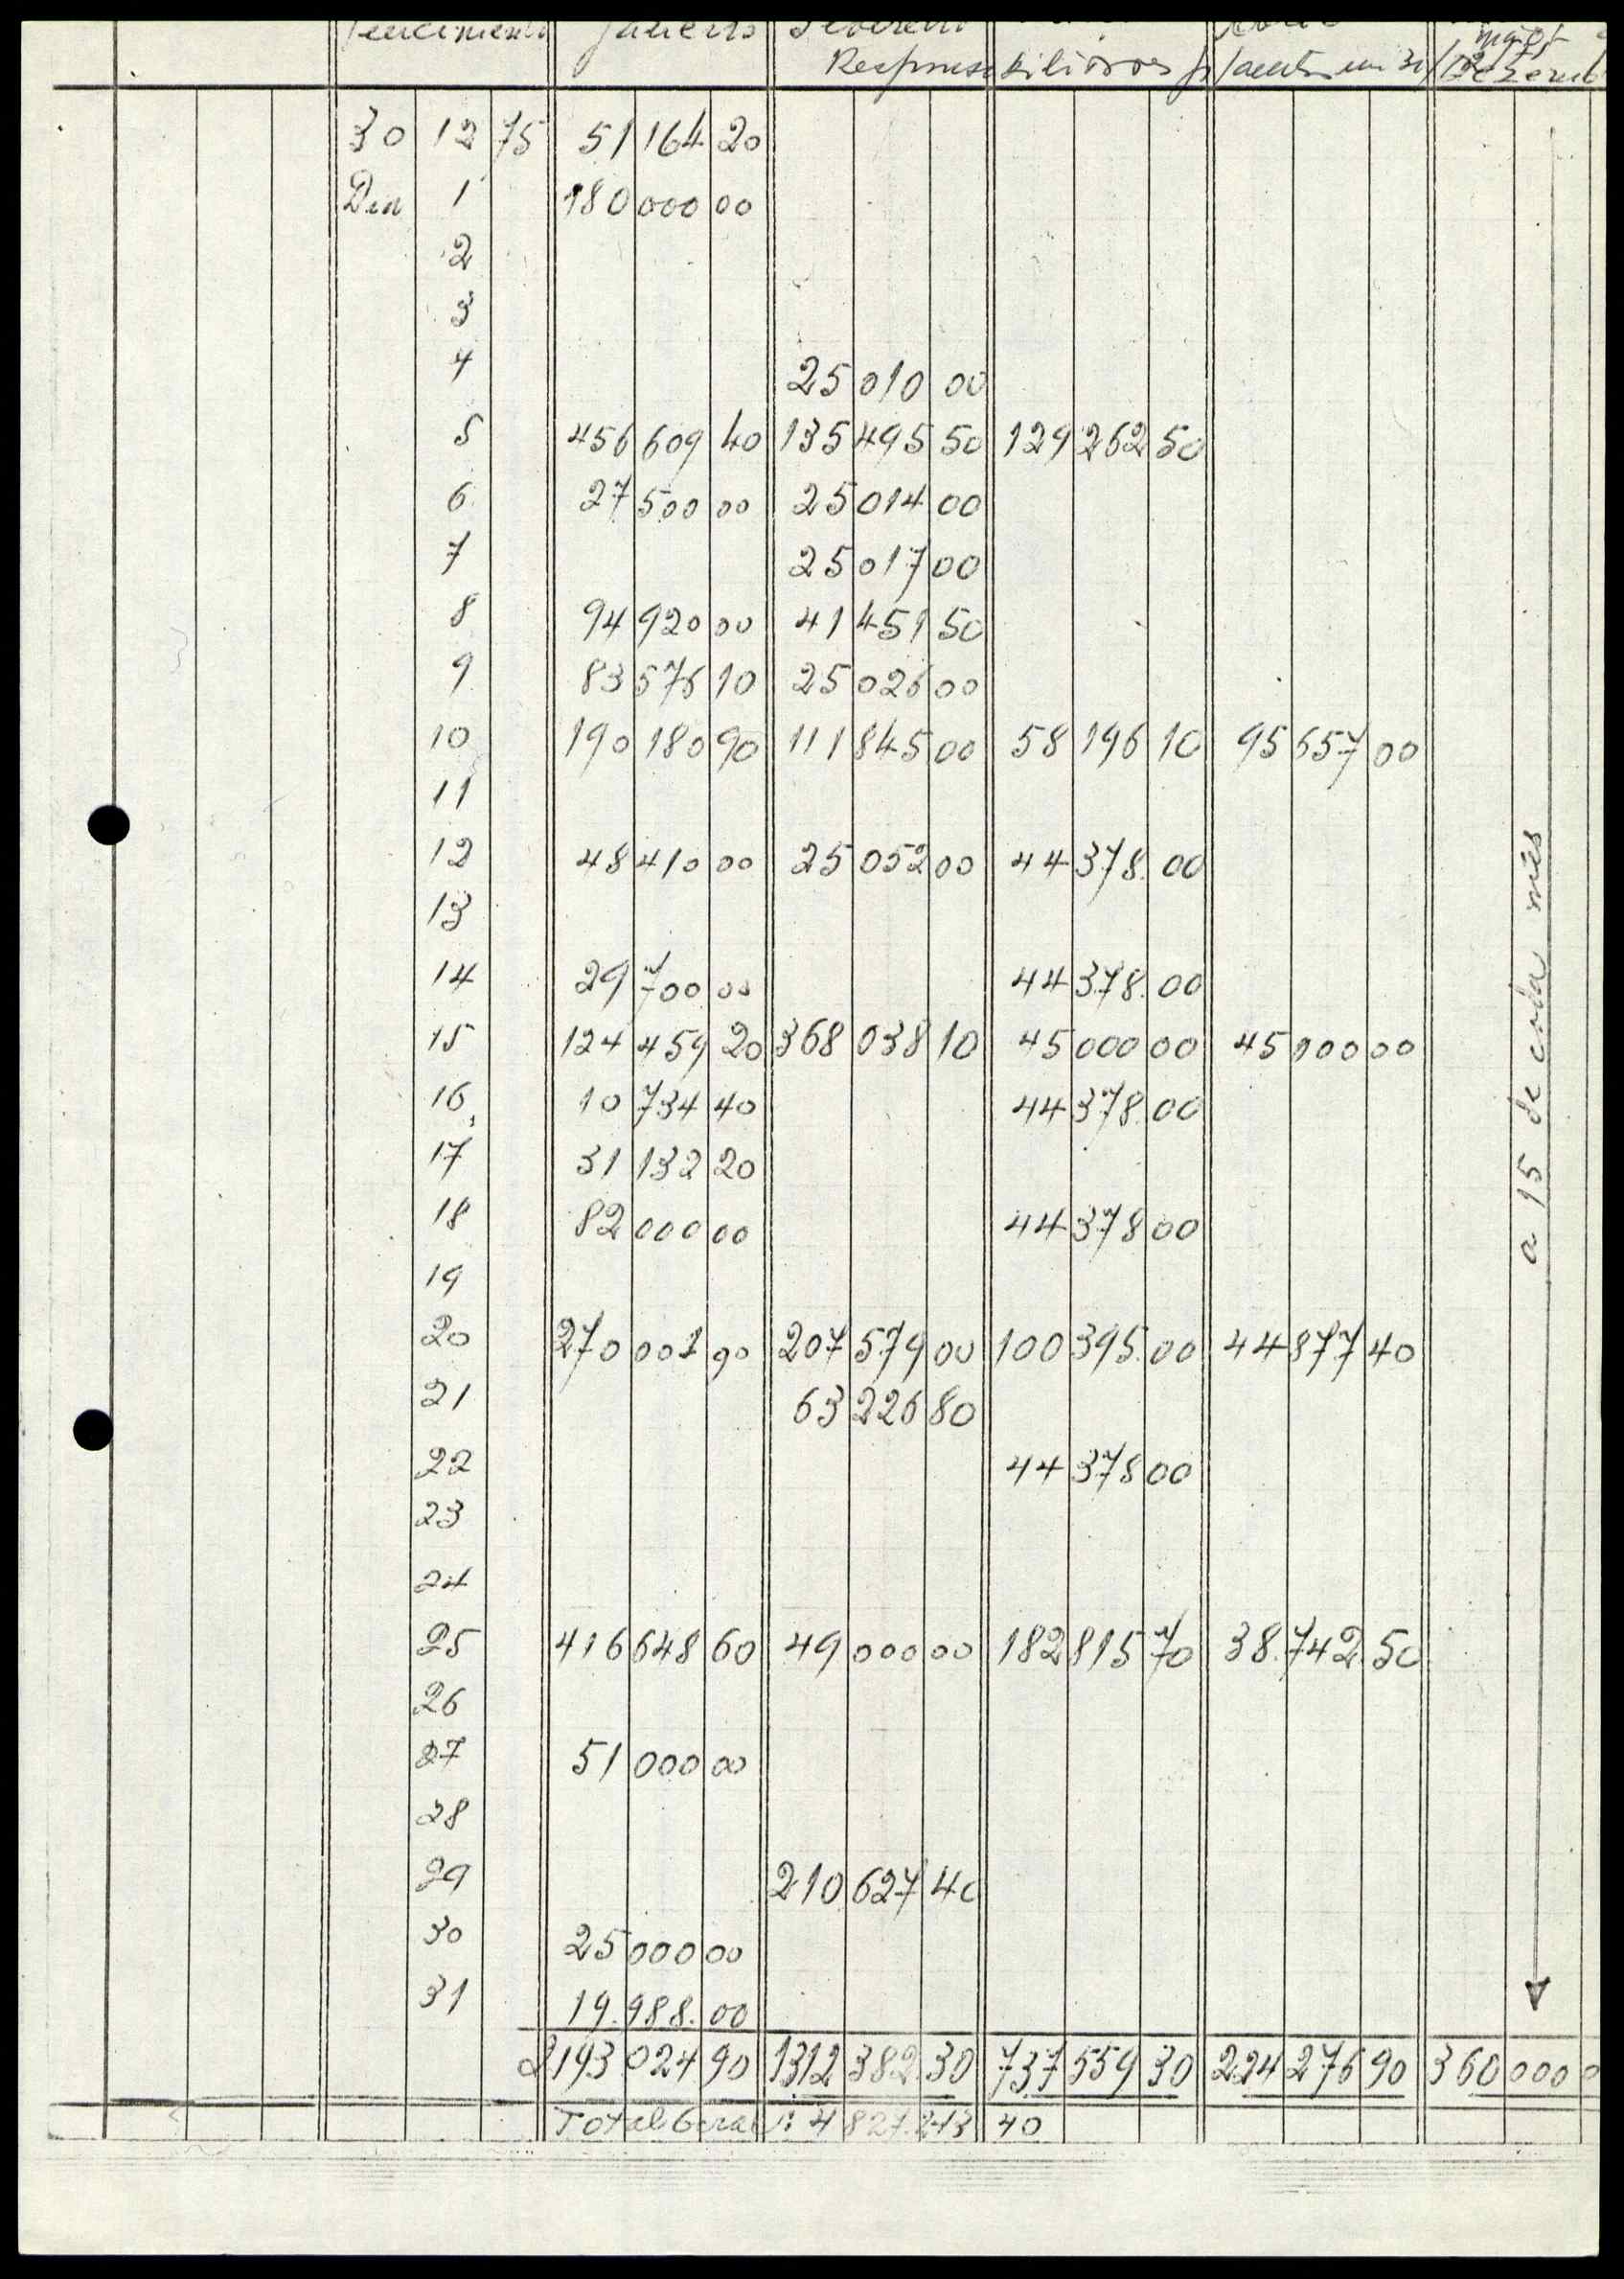 Vencimento Janeiro Fevereiro
Responsabilidades p/ 31/ Dezemb
30 12 75 51 164 20
Dia 1 180 000 00
2
3
4 25 010 00
5 456 609 40 135 495 50 129 262 50
6 27 500 00 25 014 00
7 25 017 00
8 94 920 00 41 451 50
9 83 576 10 25 026 00
10 190 180 90 111 845 00 58 196 10 95 657 00
11
12 48 410 00 25 052 00 44 378.00
13
14 29 700 00 44 378.00
15 124 459 20 368 038 10 45 000 00 45 000 00
16 10 734 40 44 378.00
17 31 132 20
18 82 000 00 44 378 00
19
20 270 001 90 207 579 00 100 395.00 44 877 40
21 63 226 80
22 44 378 00
23
24
25 416 648 60 49 000 00 182 815 70 38.742.50
26
27 51 000 00
28
29 210 627 40
30 25 000 00
31 19.988.00
2193 024 90 1312 382.30 737 559 30 224 276 90 360 000 0
Total Geral: 4 827.243 40
a 15 de cada mês